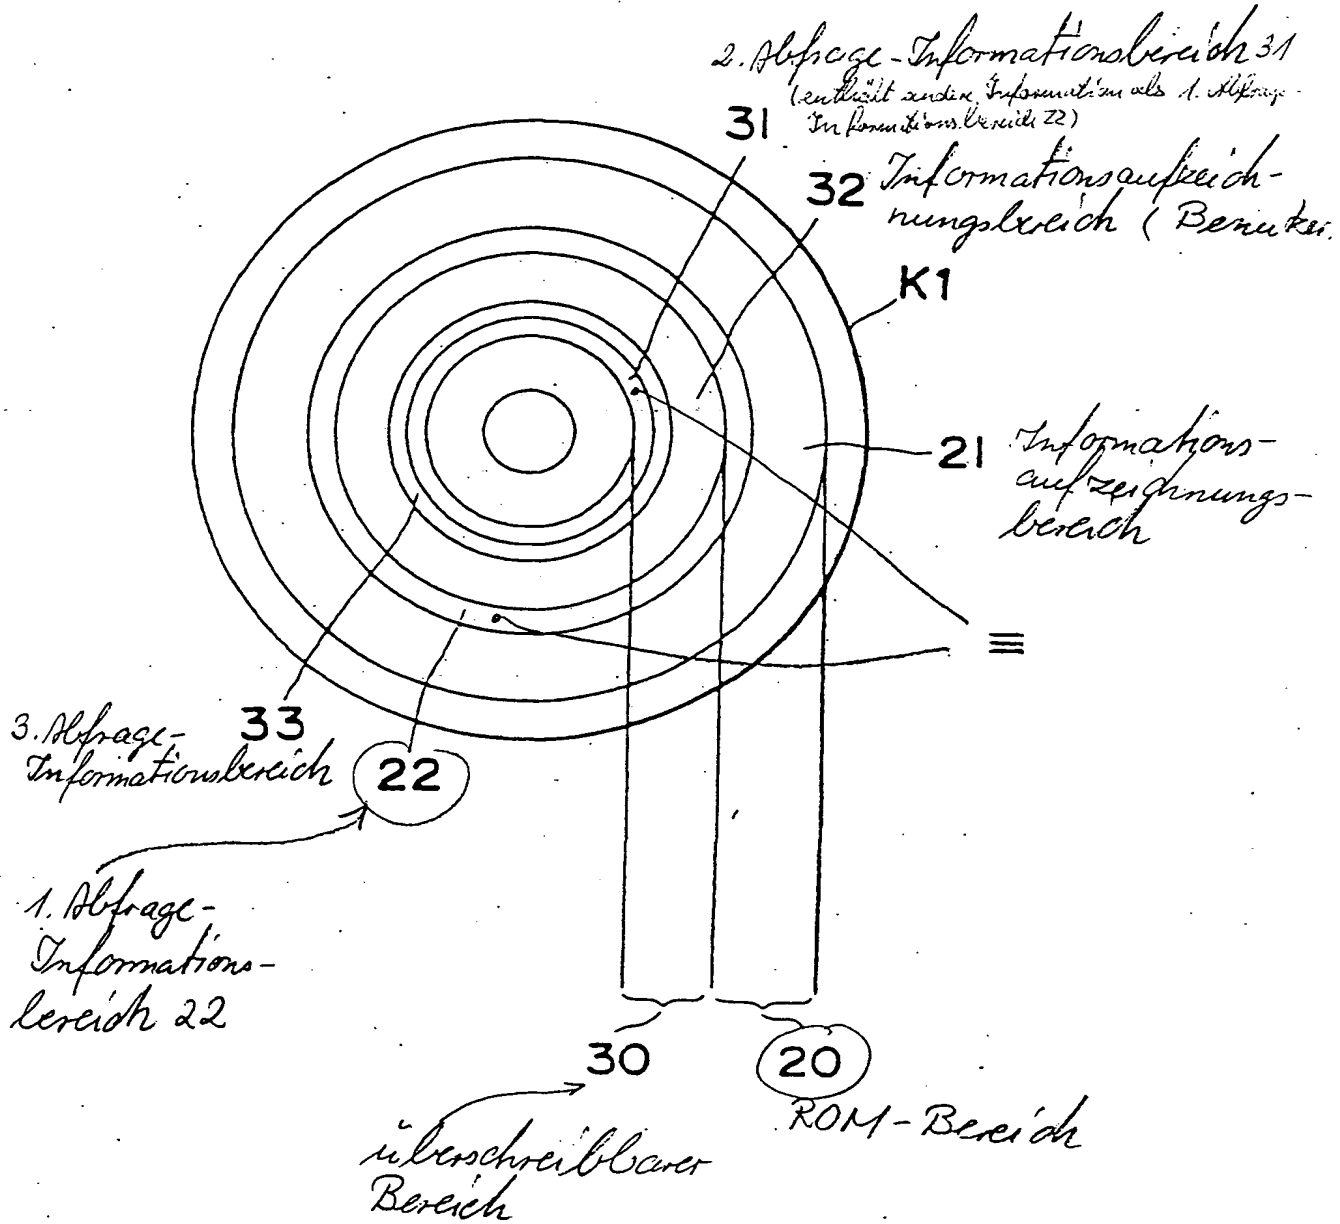 2. Abfrage-Informationsbereich 31
(enthält andere Information als 1. Abfrage-
Informationsbereich 22)
31
32 Informationsaufzeich-
nungsbereich (Benutzer.
K1
21 Informations-
aufzeichnungs-
bereich
≡
3. Abfrage-
Informationsbereich
33
22
1. Abfrage-
Informations-
bereich 22
30
20
ROM-Bereich
überschreibbarer
Bereich